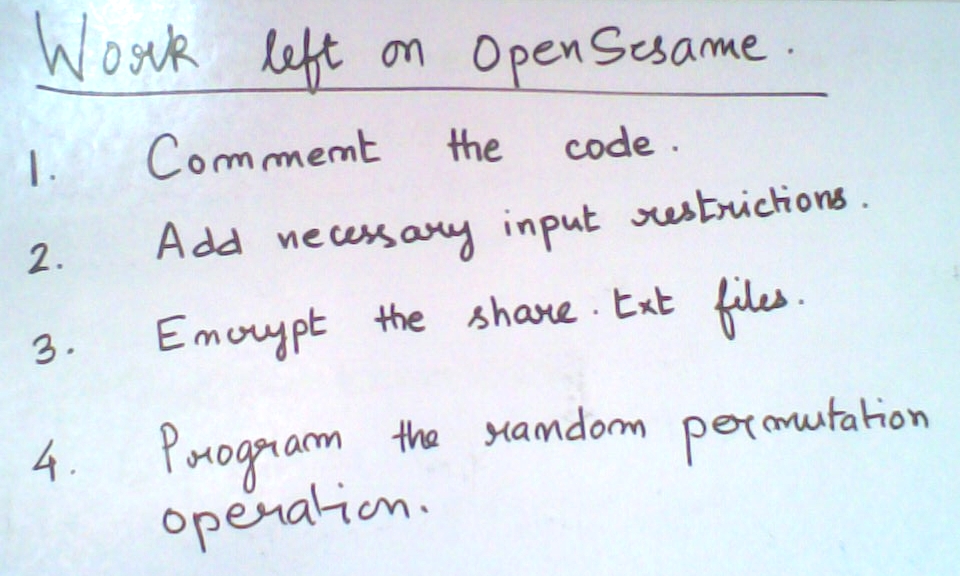 Work left on OpenSesame.
1. Comment the code.
2. Add necessary input restrictions.
3. Encrypt the share.txt files.
4. Program the random permutation
operation.